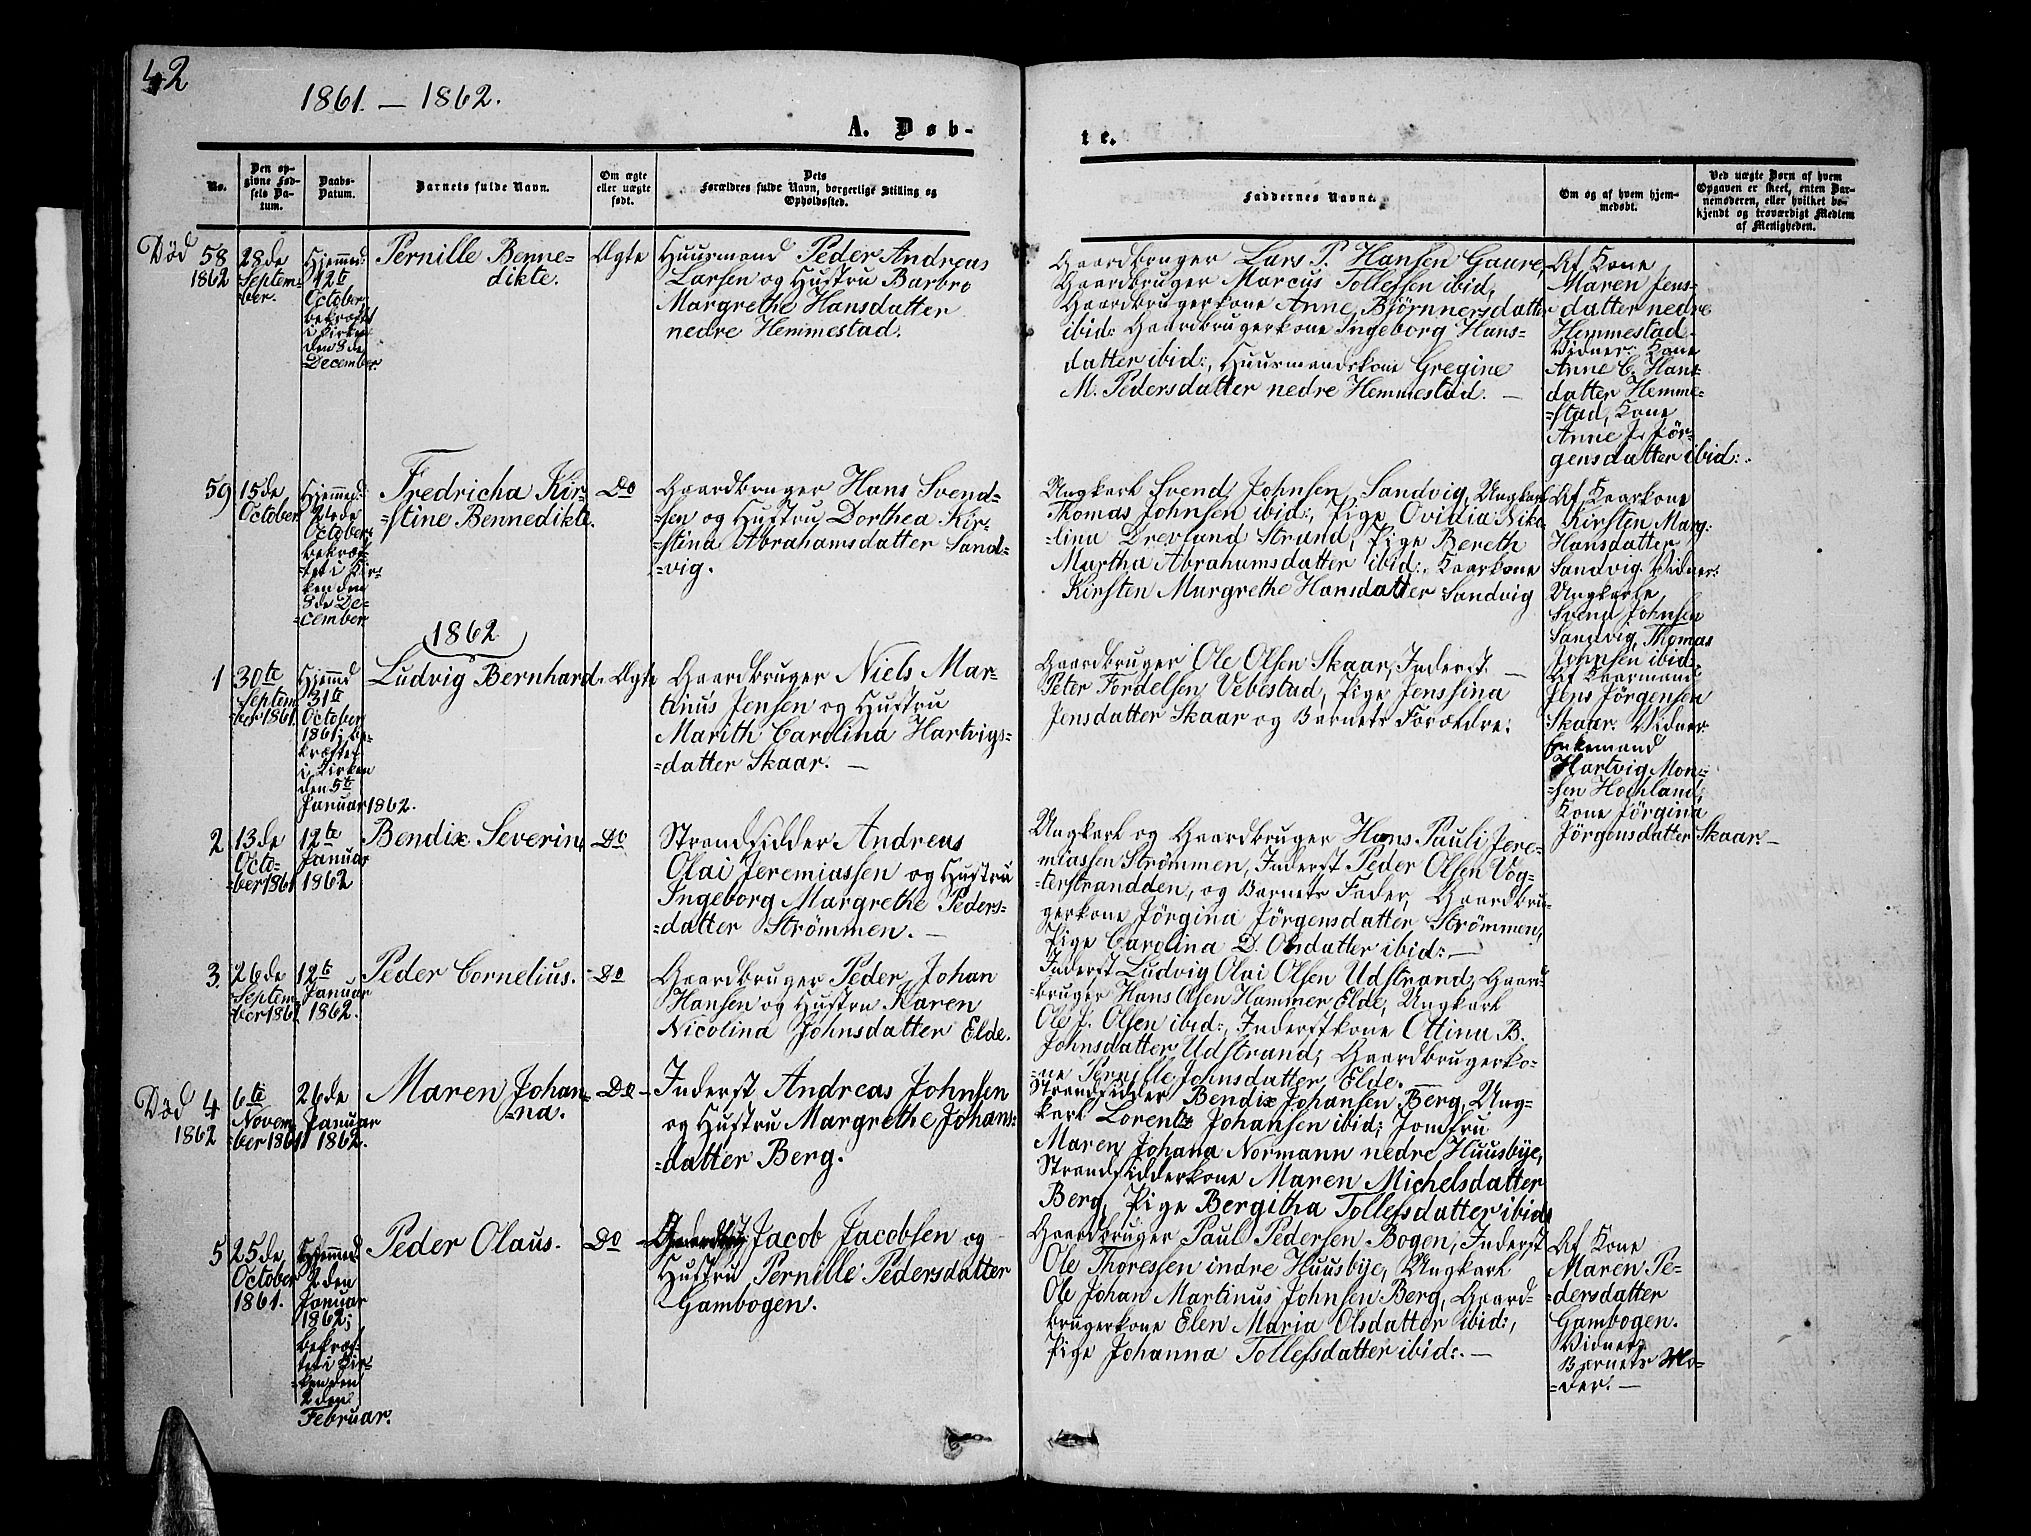 42
1861. — 1862.
A. Døb-
te.
No.
Den op-
givne Fød-
sels Da-
tum.
Daabs-
Datum.
Barnets fulde Navn.
Om ægte
eller uægte
født.
Dets
Forældres fulde Navn, borgerlige Stilling og
Opholdssted.
Faddernes Navne.
Om og af hvem hjem-
medøbt.
Ved uægte Børn af hvem
Opgaven er skeet, enten Bar-
nemoderen, eller hvilket be-
kjendt og troværdigt Medlem
af Menigheden.
Død
1862
58
28de
Septem-
ber.
Hjemmed:
12te
October,
bekræftet
i Kirken
den 8de
December.
Pernille Benne-
dikte.
Ægte
Huusmand Peder Andreas
Larsen og Hustru Barbro
Margrethe Hansdatter
nedre Hemmestad.
Gaardbruger Lars P. Hansen Gaare,
Gaardbruger Marcus Tollefsen ibid,
Gaardbrugerkone Anne Bjørnnersdatter
ibid: Gaardbrugerkone Ingeborg Hans-
datter ibid:, Huusmandskone Gregine
M. Pedersdatter nedre Hemmestad. —
Af Kone
Maren Jens-
datter nedre
Hemmestad
Vidner: Kone
Anne C. Hans-
datter Hemme-
=stad, Kone
Anne J. Jör-
gensdatter ibid:.
59
15de
October
Hjemmed:
24de
October
bekræf-
tet i Kir-
ken den
8de De-
=cember
Fredricha Kir-
=stine Bennedikte.
Do
Gaardbruger Hans Svend-
=sen og Hustru Dorthea Kir-
=stina Abrahamsdatter Sand-
=vig.
Ungkarl Svend Johnsen Sandvig, Ungkarl
Thomas Johnsen ibid:, Pige Ovidia Niko-
=lina Drevland Strand, Pige Bereth
Martha Abrahamsdatter ibid:, Kaarkone
Kirsten Margrethe Hansdatter Sandvig
Af Kaarkone
Kirsten Marg:
Hansdatter
Sandvig. Vidner:
Ungkarle
Svend Johnsen
Sandvig, Thomas
Johnsen ibid:
1862
1
30te
Septem
ber 1861.
Hjemmd
31te
October
1861; be-
kræftet
i Kirken
den 5te
Januar 1862.
Ludvig Bernhard.
Ægte
Gaardbruger Niels Mar-
tinus Jensen og Hustru
Marith Carolina Hartvigs-
=datter Skaar. —
Gaardbruger Ole Olsen Skaar, Inderst —
Peter Fordelsen Vebestad, Pige Jenssina
Jensdatter Skaar og Barnets Forældre.
Af Kaarmand
Jens Jörgensen
Skaar. Vidner:
Enkemand
Hartvig Mon-
=sen Hochland,
Kone Jörgina
Jörgensdatter Skaar. —
2
13de
Octo-
=ber 1861
12te
Januar
1862
Bendix Severin,
Do
Strandsidder Andreas
Olai Jeremiassen og Hustru
Ingeborg Margrethe Peders-
=datter Strömmen. —
Ungkarl og Gaardbruger Hans Pauli Jere-
miassen Strömmen, Inderst Peder Olsen Vog-
=terstrandden, og Barnets Fader, Gaardbru-
gerkone Jörgina Jörgensdatter Strömmen,
Pige Carolina D. Olsdatter ibid: —
3
26de
Septem
ber 1861
12te
Januar
1862.
Peder Cornelius.
Do
Gaardbruger Peder Johan
Hansen og Hustru Karen
Nicolina Johnsdatter Elde.
Inderst Ludvig Olai Olsen Udstrand, Gaard-
bruger Hans Olsen Hammer Elde, Ungkarl
Ole J. Olsen ibid:, Inderstkone Ottina B.
Johnsdatter Udstrand, Gaardbrugerko-
=ne Pernille Johnsdatter Elde. —
Død
1862
4
6te
Novem
ber 1861
26de
Januar
1862.
Maren Johan-
=na.
Do
Inderst Andreas Johnsen
og Hustru Margrethe Johans-
=datter Berg.
Strandsidder Bendix Johansen Berg, Ung-
karl Lorentz Johansen ibid; Jomfru
Maren Johana Normann nedre Huusbye,
Strandsidderkone Maren Michelsdatter
Berg, Pige Bergitha Tollefsdatter ibid.
5
25de
October
1861.
Hjemmed
2den
Januar
1862;
bekræf-
tet i Kir-
=ken den
2den
Februar.
Peder Olaus.
Do
Jacob Jacobsen og
Hustru Pernille Pedersdatter
Gambogen.
Gaardbruger Paul Pedersen Bogen, Inderst
Ole Thoressen indre Huusbye, Ungkarl
Ole Johan Martinus Johnsen Berg, Gaard-
brugerkone Elen Maria Olsdatter ibid:,
Pige Johanna Tollefsdatter ibid:. —
Af Kone
Maren Pe-
=dersdatter
Gambogen.
Vidner
Barnets Mo-
=der. —